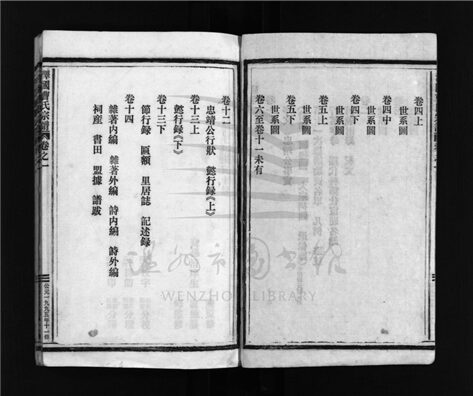 卷四上
世系圖
卷四中
世系圖
卷四下
世系圖
卷五上
世系圖
卷五下
世系圖
卷六至卷十一未有
卷十二
忠靖公行狀 懿行錄《上》
卷十三上
懿行錄《下》
卷十三下
節行錄 匾額 里居誌 記述錄
卷十四
雜著內編 雜著外編 詩內編 詩外編
祠產 書田 盟據 譜跋
國曹氏宗譜卷之一
公元一九九五年十一修
溫州市圖書館
WENZHOU LIBRARY